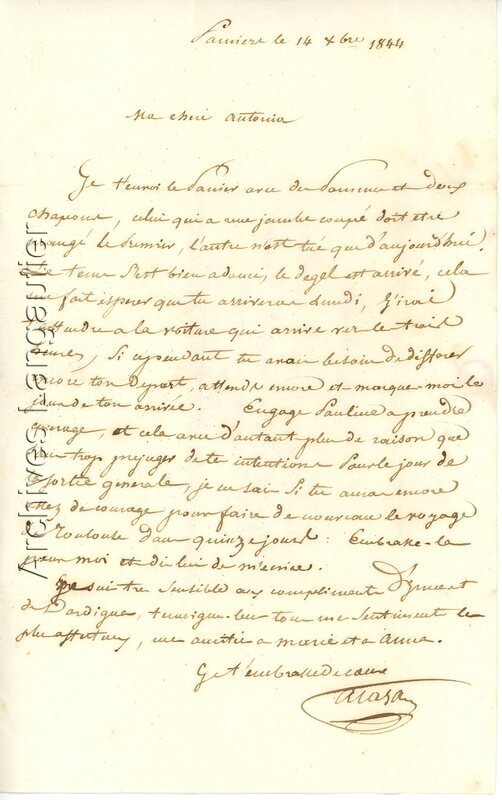 Pamiers le 14 Xbre 1844
Ma chere Antonia
Je t'envoi le Panier avec des Pommes et deux
chapons, celui qui a une jambe coupé doit etre
mangé le premier, l'autre n'est tué que d'aujourdhui.
Le tems s'est bien adouci, le degel est arrivé, cela
me fait esperer que tu arriveras Lundi, J'irai
attendre a la voiture qui arrive ver le trois
heures, Si cependant tu avais besoin de differer
encore ton Depart, attends encore et marque moi le
jour de ton arrivée. Engage Pauline a prendre
courage, et cela avec d'autant plus de raison que
sans trop prejuger de tes intentions pour le jour de
sortie generale, je ne sais si tu auras encore
assez de courage pour faire de nouveau le voyage
Toulouse dans quinze jours : Embrasse-la
pour moi et dis lui de m'ecrire.
Je suis tres sensible aux compliments
de Dardigna, temoigne leur tous mes sentiments les
plus affectueux, mes amitiés a marie et a Anna.
Je t'embrasse de coeur
Archives Lengaulier